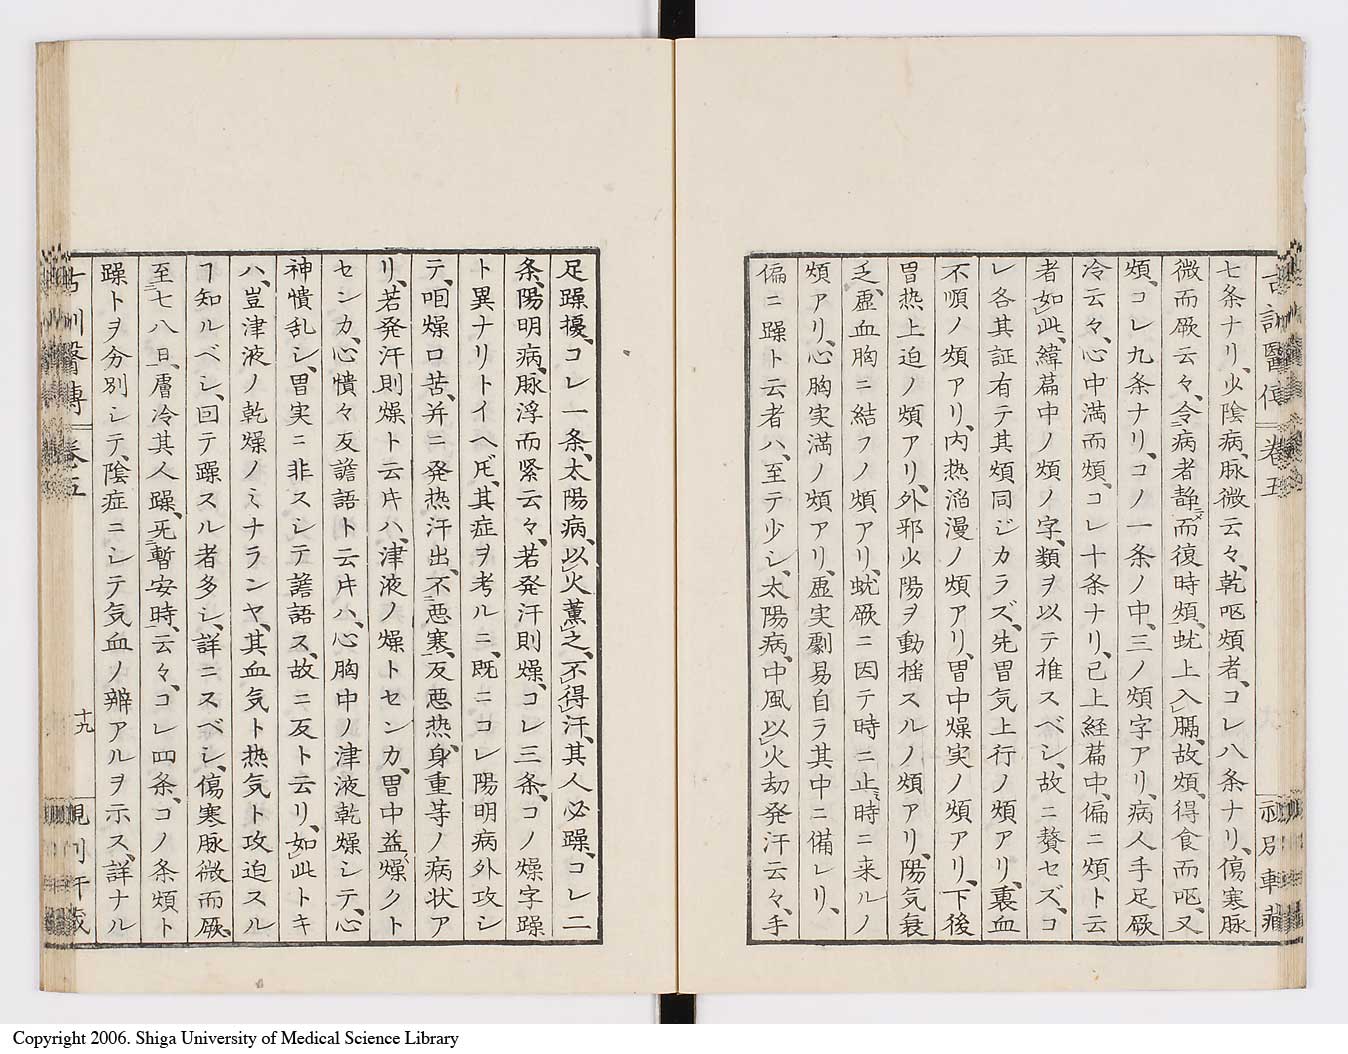 七条ナリ、少陰病、脉微云々、乾呕煩者、コレ八条ナリ、傷寒脉
微而厥云々、令病者静而復時煩、蚘上入膈、故煩、得食而呕、又
煩、コレ九条ナリ、コノ一条ノ中、三ノ煩字アリ、病人手足厥
冷云々、心中満而煩、コレ十条ナリ、已上経篇中、偏ニ煩ト云
者如此、緯篇中ノ煩ノ字、類ヲ以テ推スベシ、故ニ贅セズ、コ
レ各其証有テ其煩同ジカラズ、先胃気上行ノ煩アリ、裏血
不順ノ煩アリ、内热滔漫ノ煩アリ、胃中燥実ノ煩アリ、下後
胃热上迫ノ煩アリ、外邪少陽ヲ動揺スルノ煩アリ、陽気衰
乏、虚血胸ニ結フノ煩アリ、蚘厥ニ因テ時ニ止ミ時ニ来ルノ
煩アリ、心胸実満ノ煩アリ、虚実劇易自ラ其中ニ備レリ、
偏ニ躁ト云者ハ、至テ少シ、太陽病、中風以火劫発汗云々、手
古訓醫傳 卷五
足躁擾、コレ一条、太陽病、以火薫之、不得汗、其人必躁、コレ二
条、陽明病、脉浮而緊云々、若発汗則燥、コレ三条、コノ燥字躁
ト異ナリトイヘ𪜈、其症ヲ考ルニ、既ニコレ陽明病外攻シ
テ、咽燥口苦、并ニ発热汗出、不悪寒、反悪热、身重等ノ病状ア
リ、若発汗則燥ト云片ハ、津液ノ燥トセンカ、胃中益燥クト
センカ、心憒々反譫語ト云片ハ、心胸中ノ津液乾燥シテ、心
神憒乱シ、胃実ニ非スシテ譫語ス、故ニ反ト云リ、如此トキ
ハ、豈津液ノ乾燥ノミナランヤ、其血気ト热気ト攻迫スル
ヿ知ルベシ、回テ躁スル者多シ、詳ニスベシ、傷寒脉微而厥、
至七八日、膚冷其人躁、死暫安時、云々、コレ四条、コノ条煩ト
躁トヲ分別シテ、陰症ニシテ気血ノ辨アルヲ示ス、詳ナル
古訓醫傳 卷五
十九
Copyright 2006. Shiga University of Medical Science Library